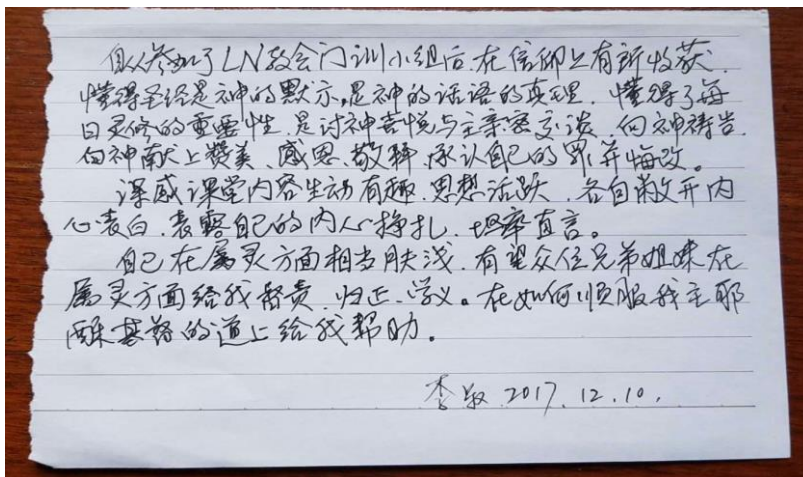 自从参加了LN教会门训小组后,在信仰上有新收获,
懂得圣经是神的默示,是神的话语的真理,懂得了每
日灵修的重要性,是讨神喜悦与主亲密交谈,向神祷告,
向神献上赞美、感恩、敬拜,承认自己的罪并悔改。
深感课堂内容生动有趣,思想活跃,各自敞开内
心表白,表露自己的内心挣扎,坦率直言。
自己在属灵方面相当肤浅,有望众位兄弟姐妹在
属灵方面给我督责、归正、学义。在如何顺服我主耶
稣基督的道上给我帮助。
李 2017.12.10.